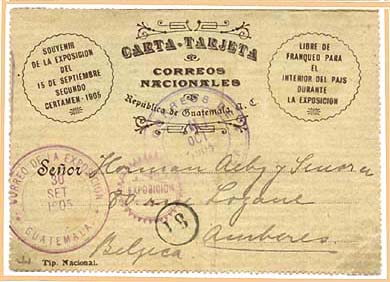 SOUVENIR
DE LA EXPOSICION
DEL
15 DE SEPTIEMBRE
SEGUNDO
CERTAMEN - 1905
CARTA-TARJETA
CORREOS
NACIONALES
República de Guatemala, A. C.
LIBRE DE
FRANQUEO PARA EL
INTERIOR DEL PAIS
DURANTE
LA EXPOSICION
CORREOS
OCT
1905
CORREO DE LA EXPOSICION
30
SET
1905
GUATEMALA
EXPOSICION
Señor Herman Aeby y Senora
rue Lozane
Amberes.
Belgica.
31
Tip. Nacional.